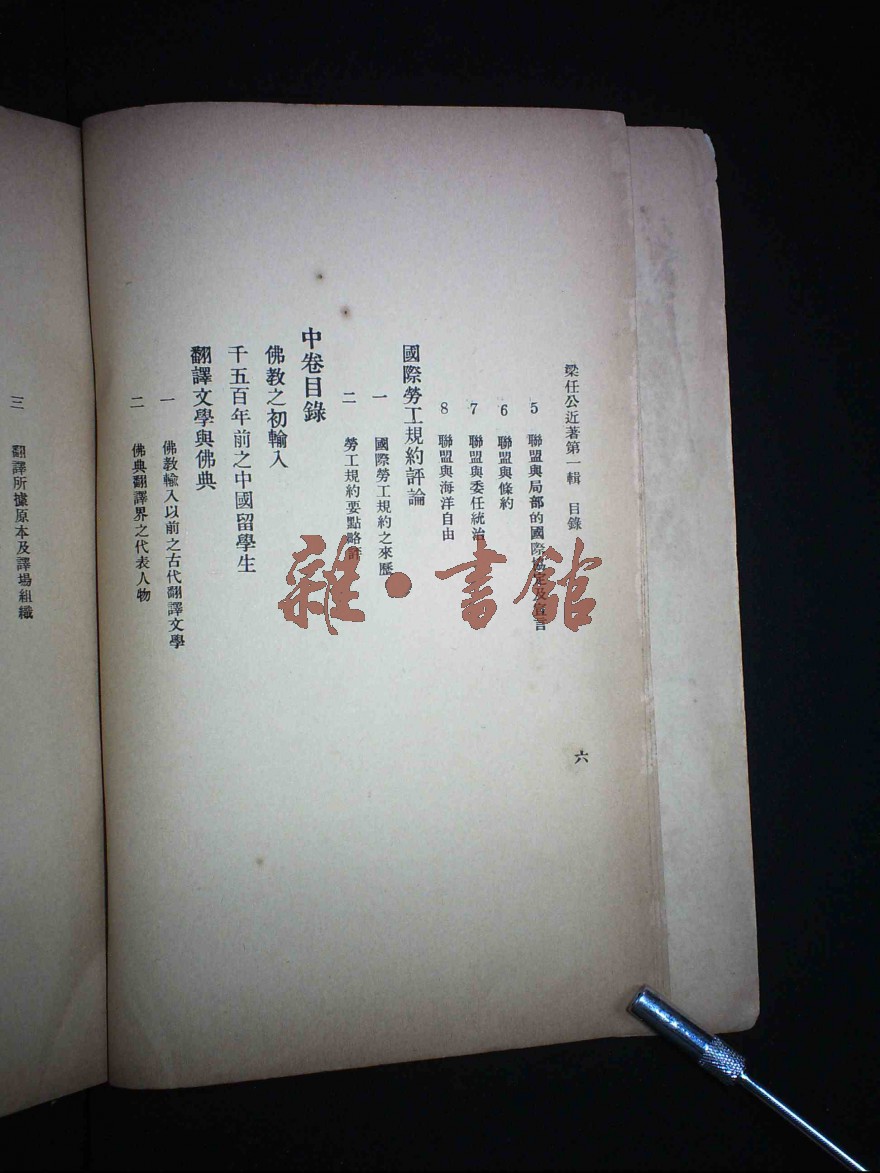 梁任公近著第一輯 目錄
六
5 聯盟與局部的國際協定及宣言
6 聯盟與條約
7 聯盟與委任統治
8 聯盟與海洋自由
國際勞工規約評論
一 國際勞工規約之來歷
二 勞工規約要點略評
中卷目錄
佛教之初輸入
千五百年前之中國留學生
翻譯文學與佛典
一 佛教輸入以前之古代翻譯文學
二 佛典翻譯界之代表人物
三 翻譯所據原本及譯場組織
雜·書館